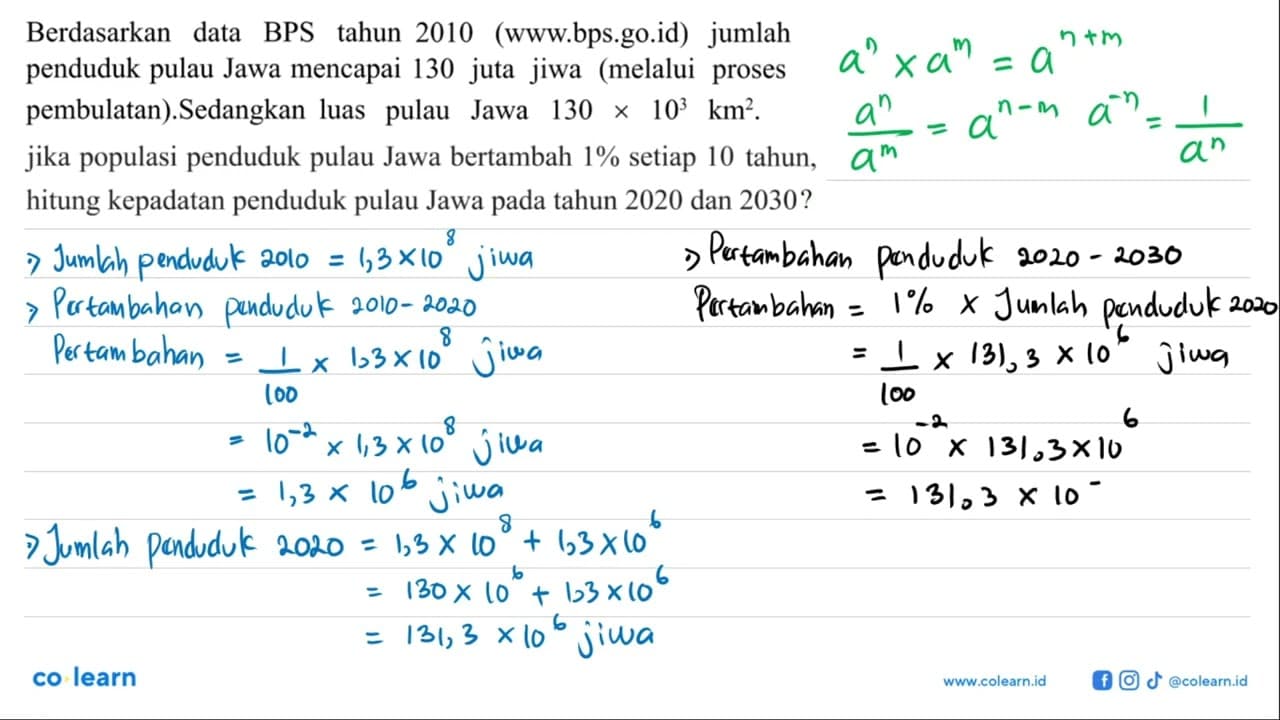 Berdasarkan data BPS tahun 2010 (www.bps.go.id) jumlah
penduduk pulau Jawa mencapai 130 juta jiwa (melalui proses
pembulatan).Sedangkan luas pulau Jawa 130 × 10³ km².
jika populasi penduduk pulau Jawa bertambah 1% setiap 10 tahun,
hitung kepadatan penduduk pulau Jawa pada tahun 2020 dan 2030?
aⁿ × aᵐ = aⁿ⁺ᵐ
aⁿ/aᵐ = aⁿ⁻ᵐ a⁻ⁿ = 1/aⁿ
⇒ Jumlah penduduk 2010 = 1,3 × 10⁸ jiwa
> Pertambahan penduduk 2010 - 2020
Pertambahan = 1/100 × 1,3 × 10⁸ jiwa
= 10⁻² × 1,3 × 10⁸ jiwa
= 1,3 × 10⁶ jiwa
⇒ Jumlah penduduk 2020 = 1,3 × 10⁸ + 1,3 × 10⁶
= 130 × 10⁶ + 1,3 × 10⁶
= 131,3 × 10⁶ jiwa
⇒ Pertambahan penduduk 2020 - 2030
Pertambahan = 1% × Jumlah penduduk 2020
= 1/100 × 131,3 × 10⁶ jiwa
= 10⁻² × 131,3 × 10⁶
= 131,3 × 10⁻
co·learn
www.colearn.id
@colearn.id